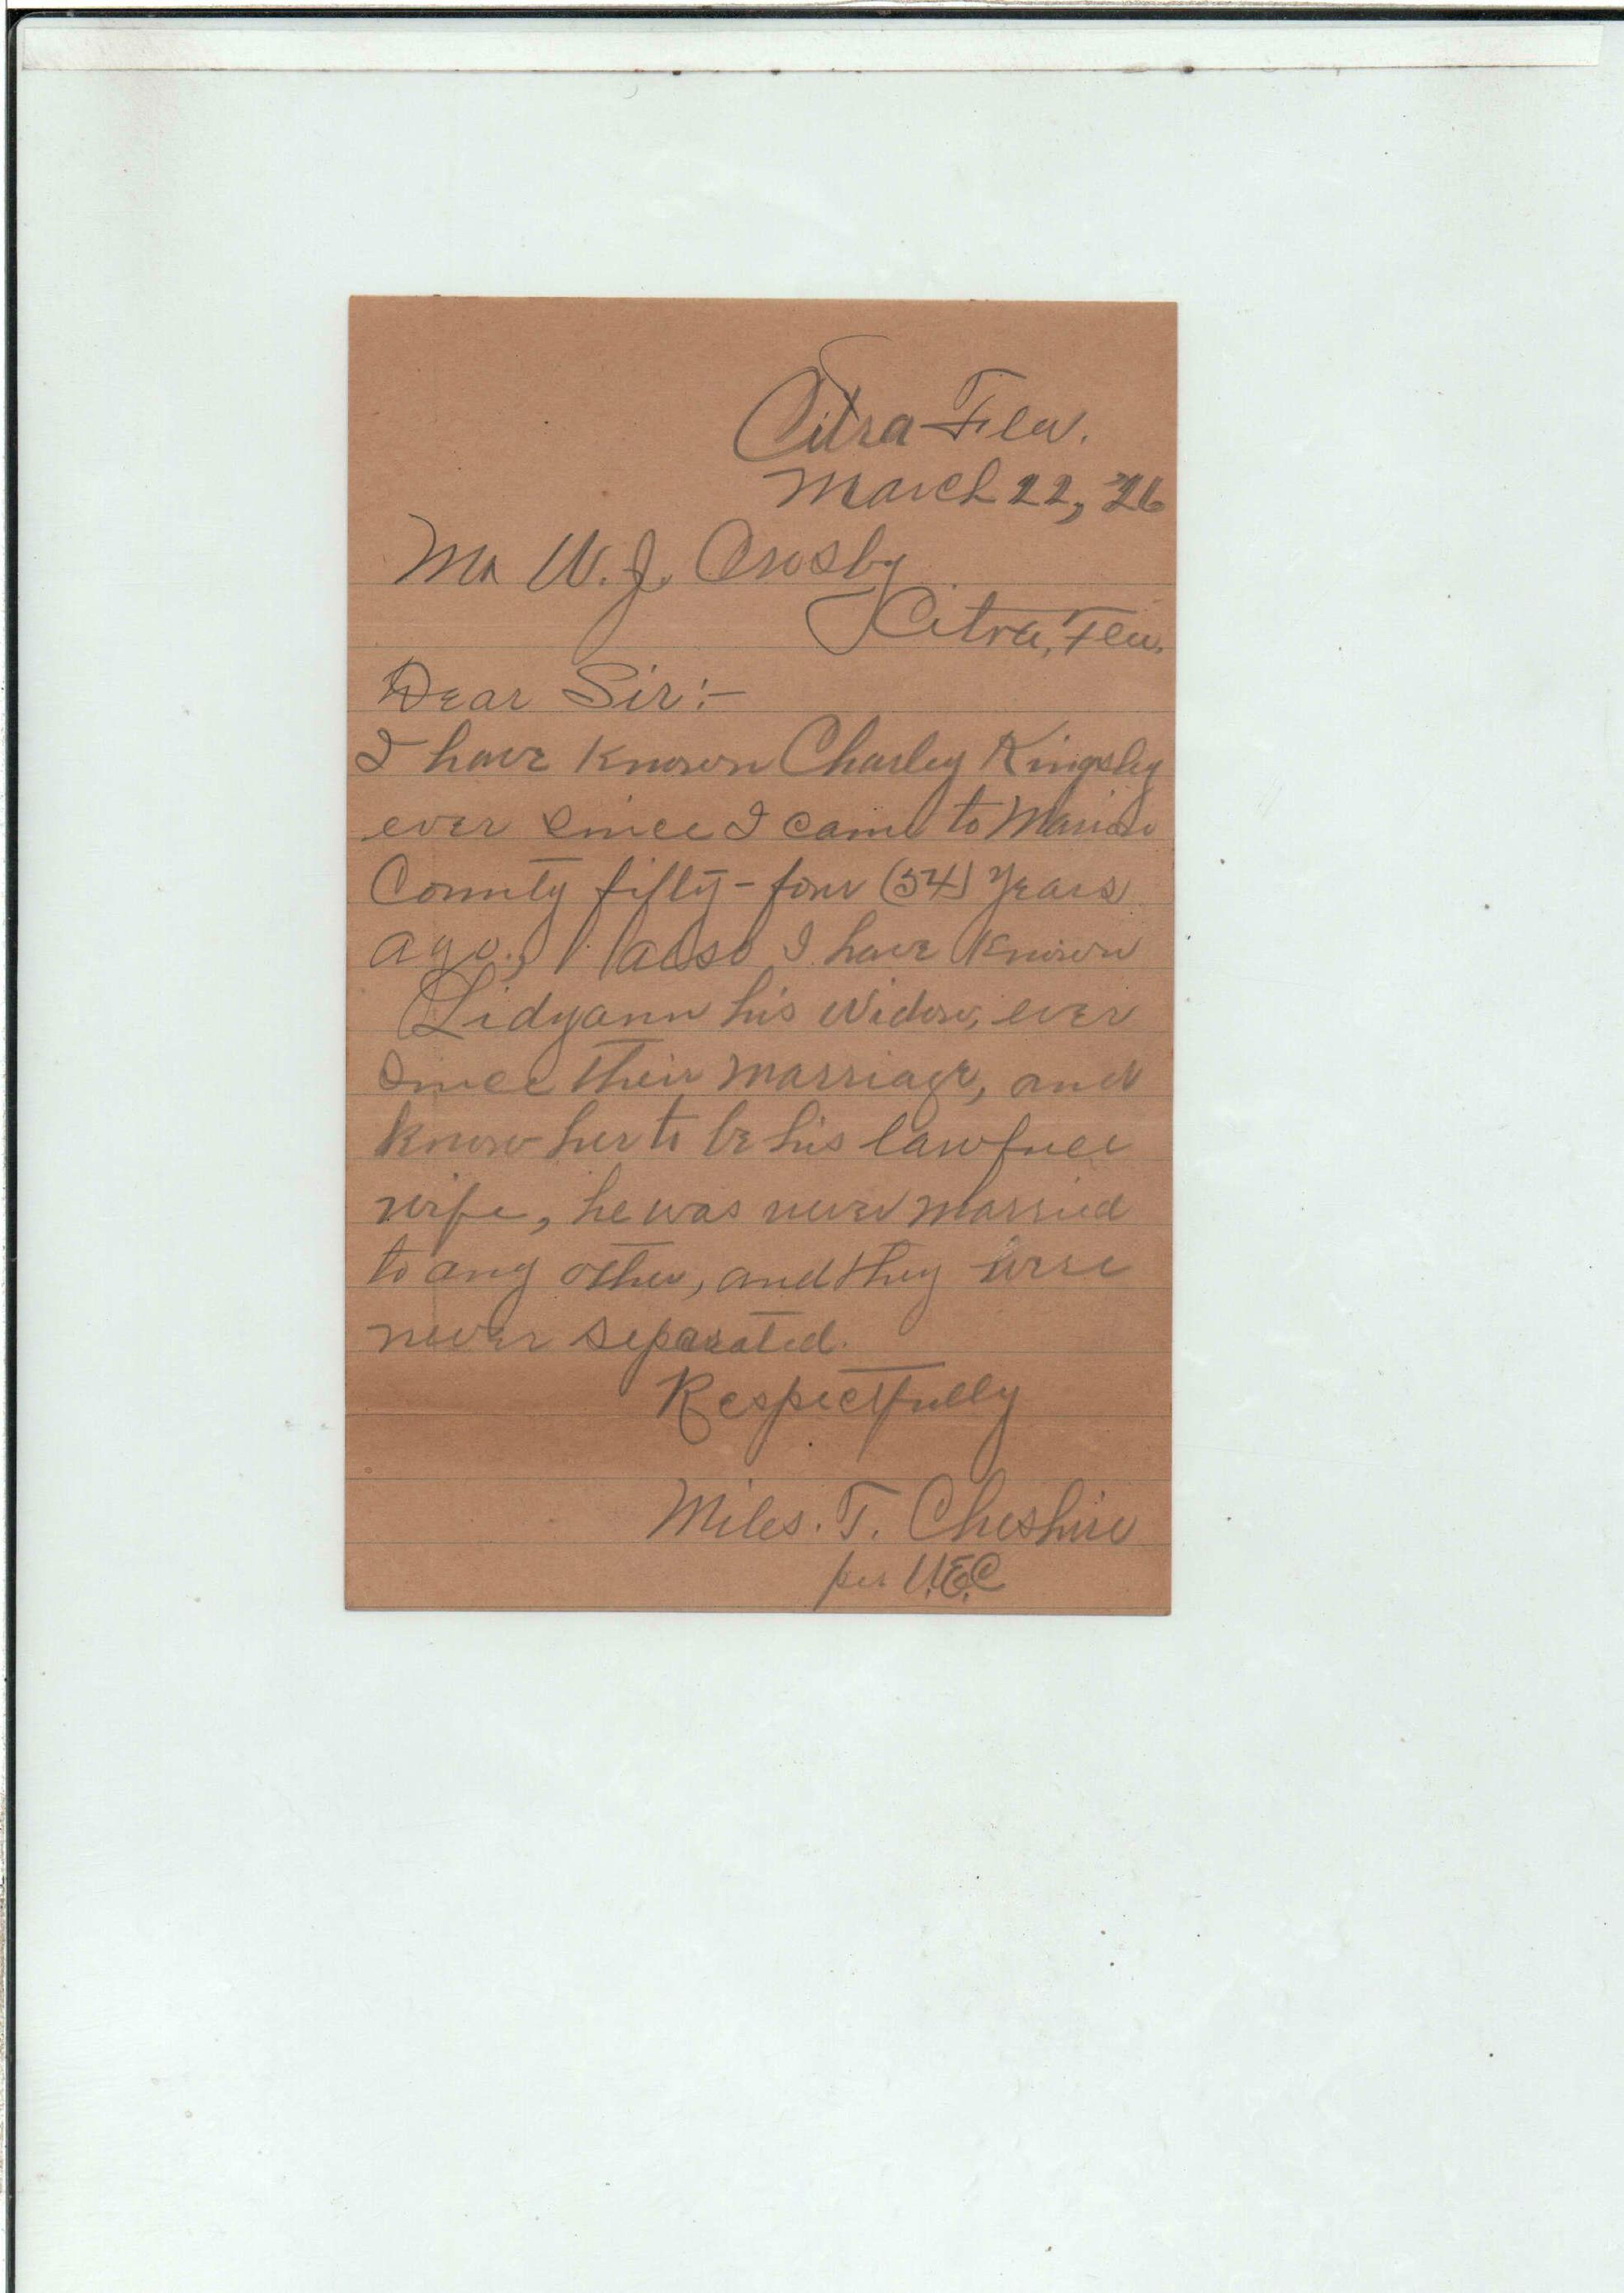 Citra Fla.
March 22, '26
Mr W. J. Crosby
Citra, Fla.
Dear Sir:-
I have known Charley Kingsley
ever since I came to Marion
County fifty-four (54) years
ago., also I have known
Lidyann his widow, ever
since their marriage, and
know her to be his lawfull
wife, he was never married
to any other, and they were
never separated.
Respectfully
Miles. T. Cheshire
per U.E.C